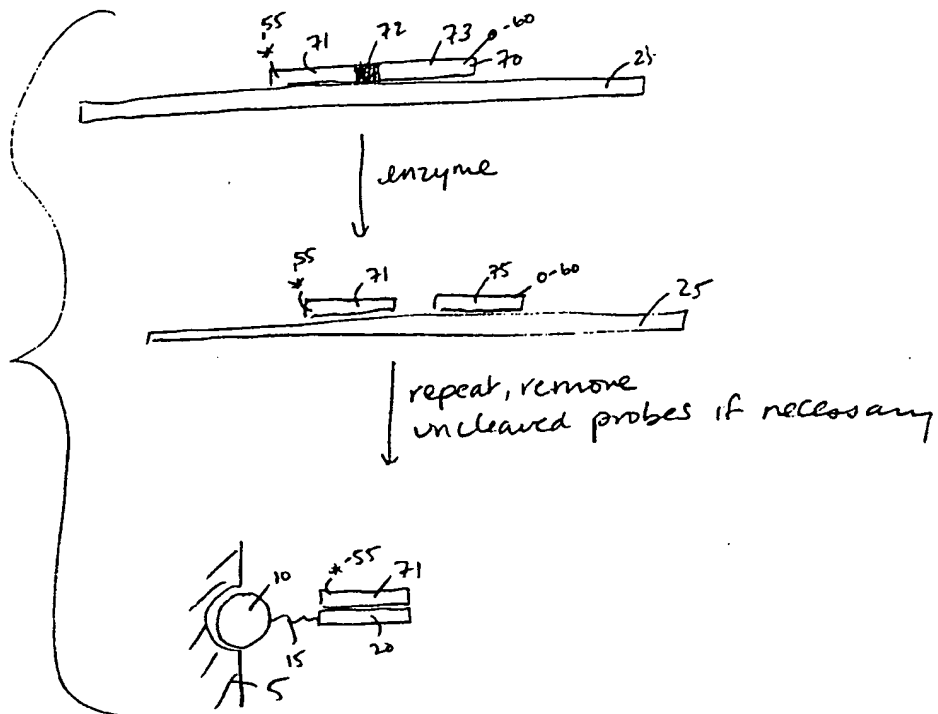 *-55 71 72 73 o-60
70
25
enzyme
*-55 71 75 o-60
25
repeat, remove
uncleaved probes if necessary
10 *-55 71
15 20
5